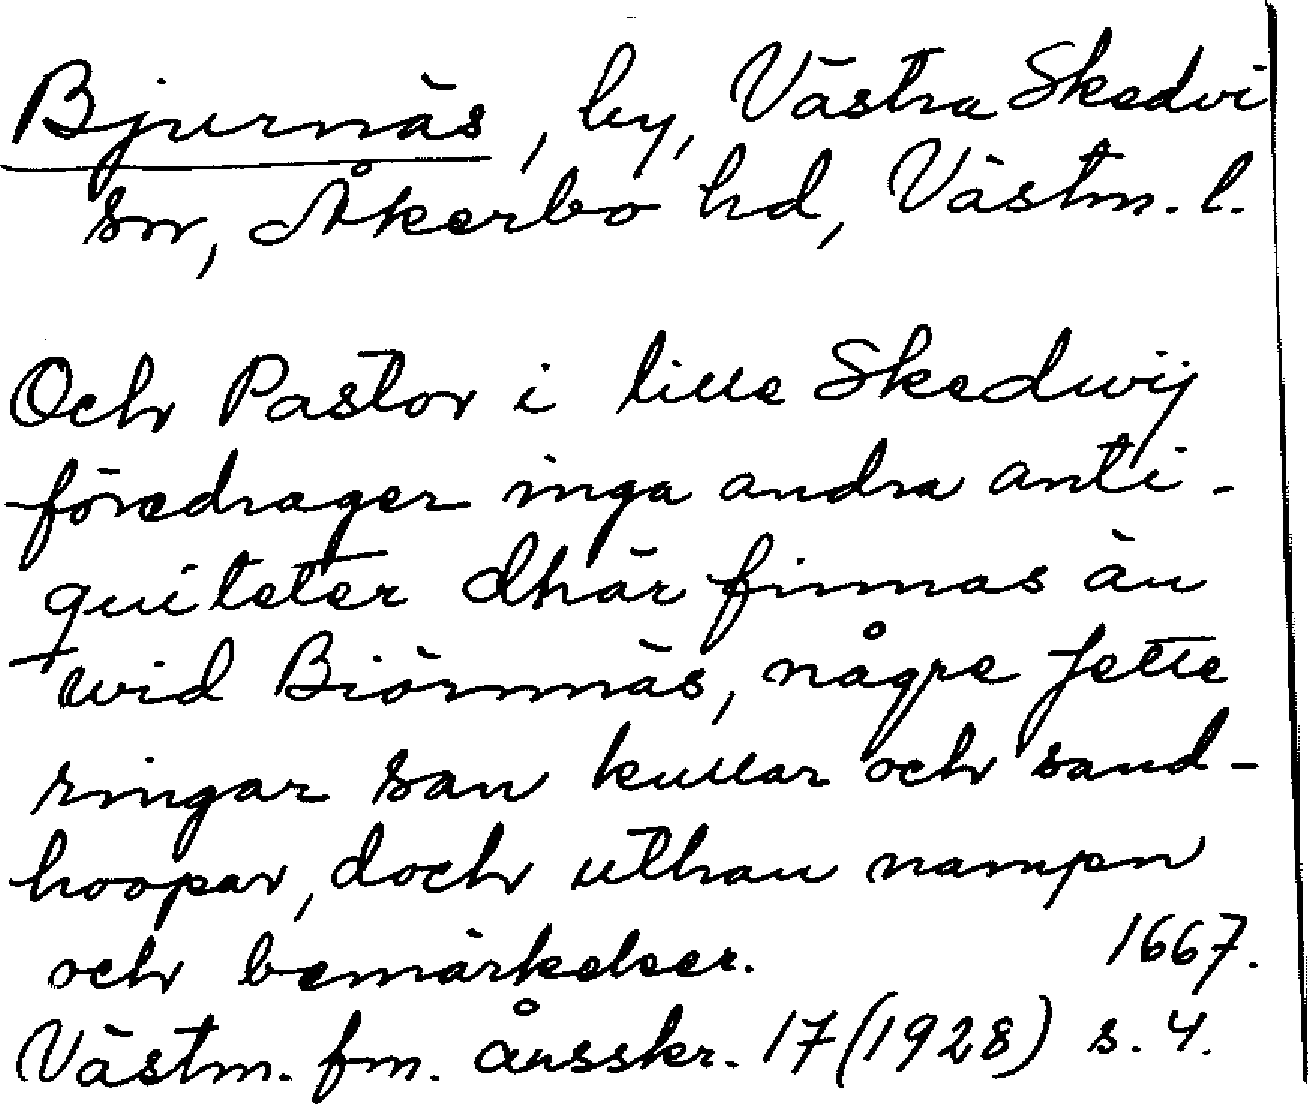 Bjurnäs, by, Västra Skedvi
sn, Åkerbo hd, Västm. l.
Och Pastor i lille Skedwij
föredrager inga andra anti-
quiteter dhär finnas än
wid Biörnnäs, några Jette
ringar san kullar och sand-
hoopar, doch uthan nampn
och bemärkelser. 1667.
Västm. fm. årsskr. 17 (1928) s. 4.